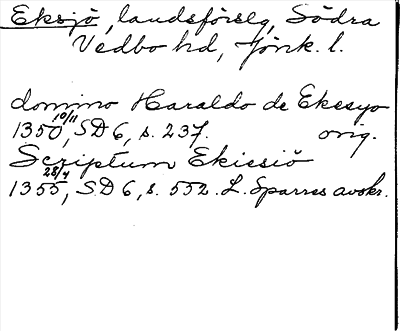 Eksjö, landsförslg, Södra
Vedbo hd, Jönk. l.
domino Haraldo de Ekesyo
1350 10/11, SD 6, s. 237. orig.
Scriptum Ekiesiö
1355 28/4, SD 6, s. 552. L. Sparres avskr.